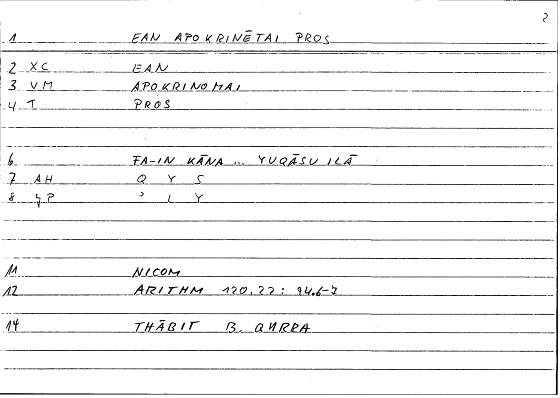 2
1 EAN APOKRINĒTAI PROS
2 XC EAN
3 VM APOKRINOMAI
4 T PROS
6 FA-IN KĀNA ... YUQĀSU ILĀ
7 AH Q Y S
8 P ʾ L Y
11 NICOM
12 ARITHM 120.22 : 94.6-7
14 THĀBIT B. QURRA